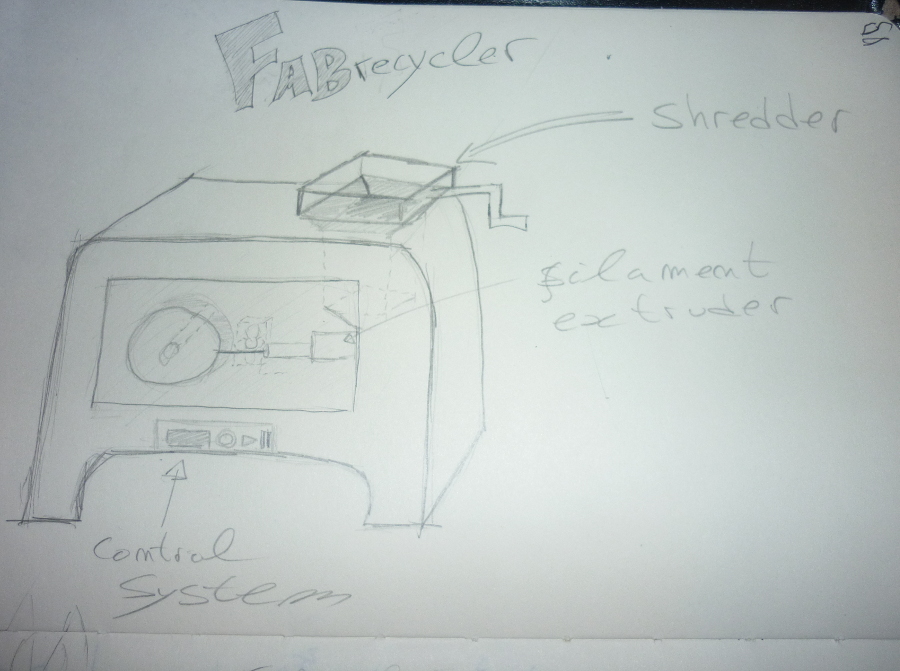 FABrecycler
shredder
filament
extruder
control
system